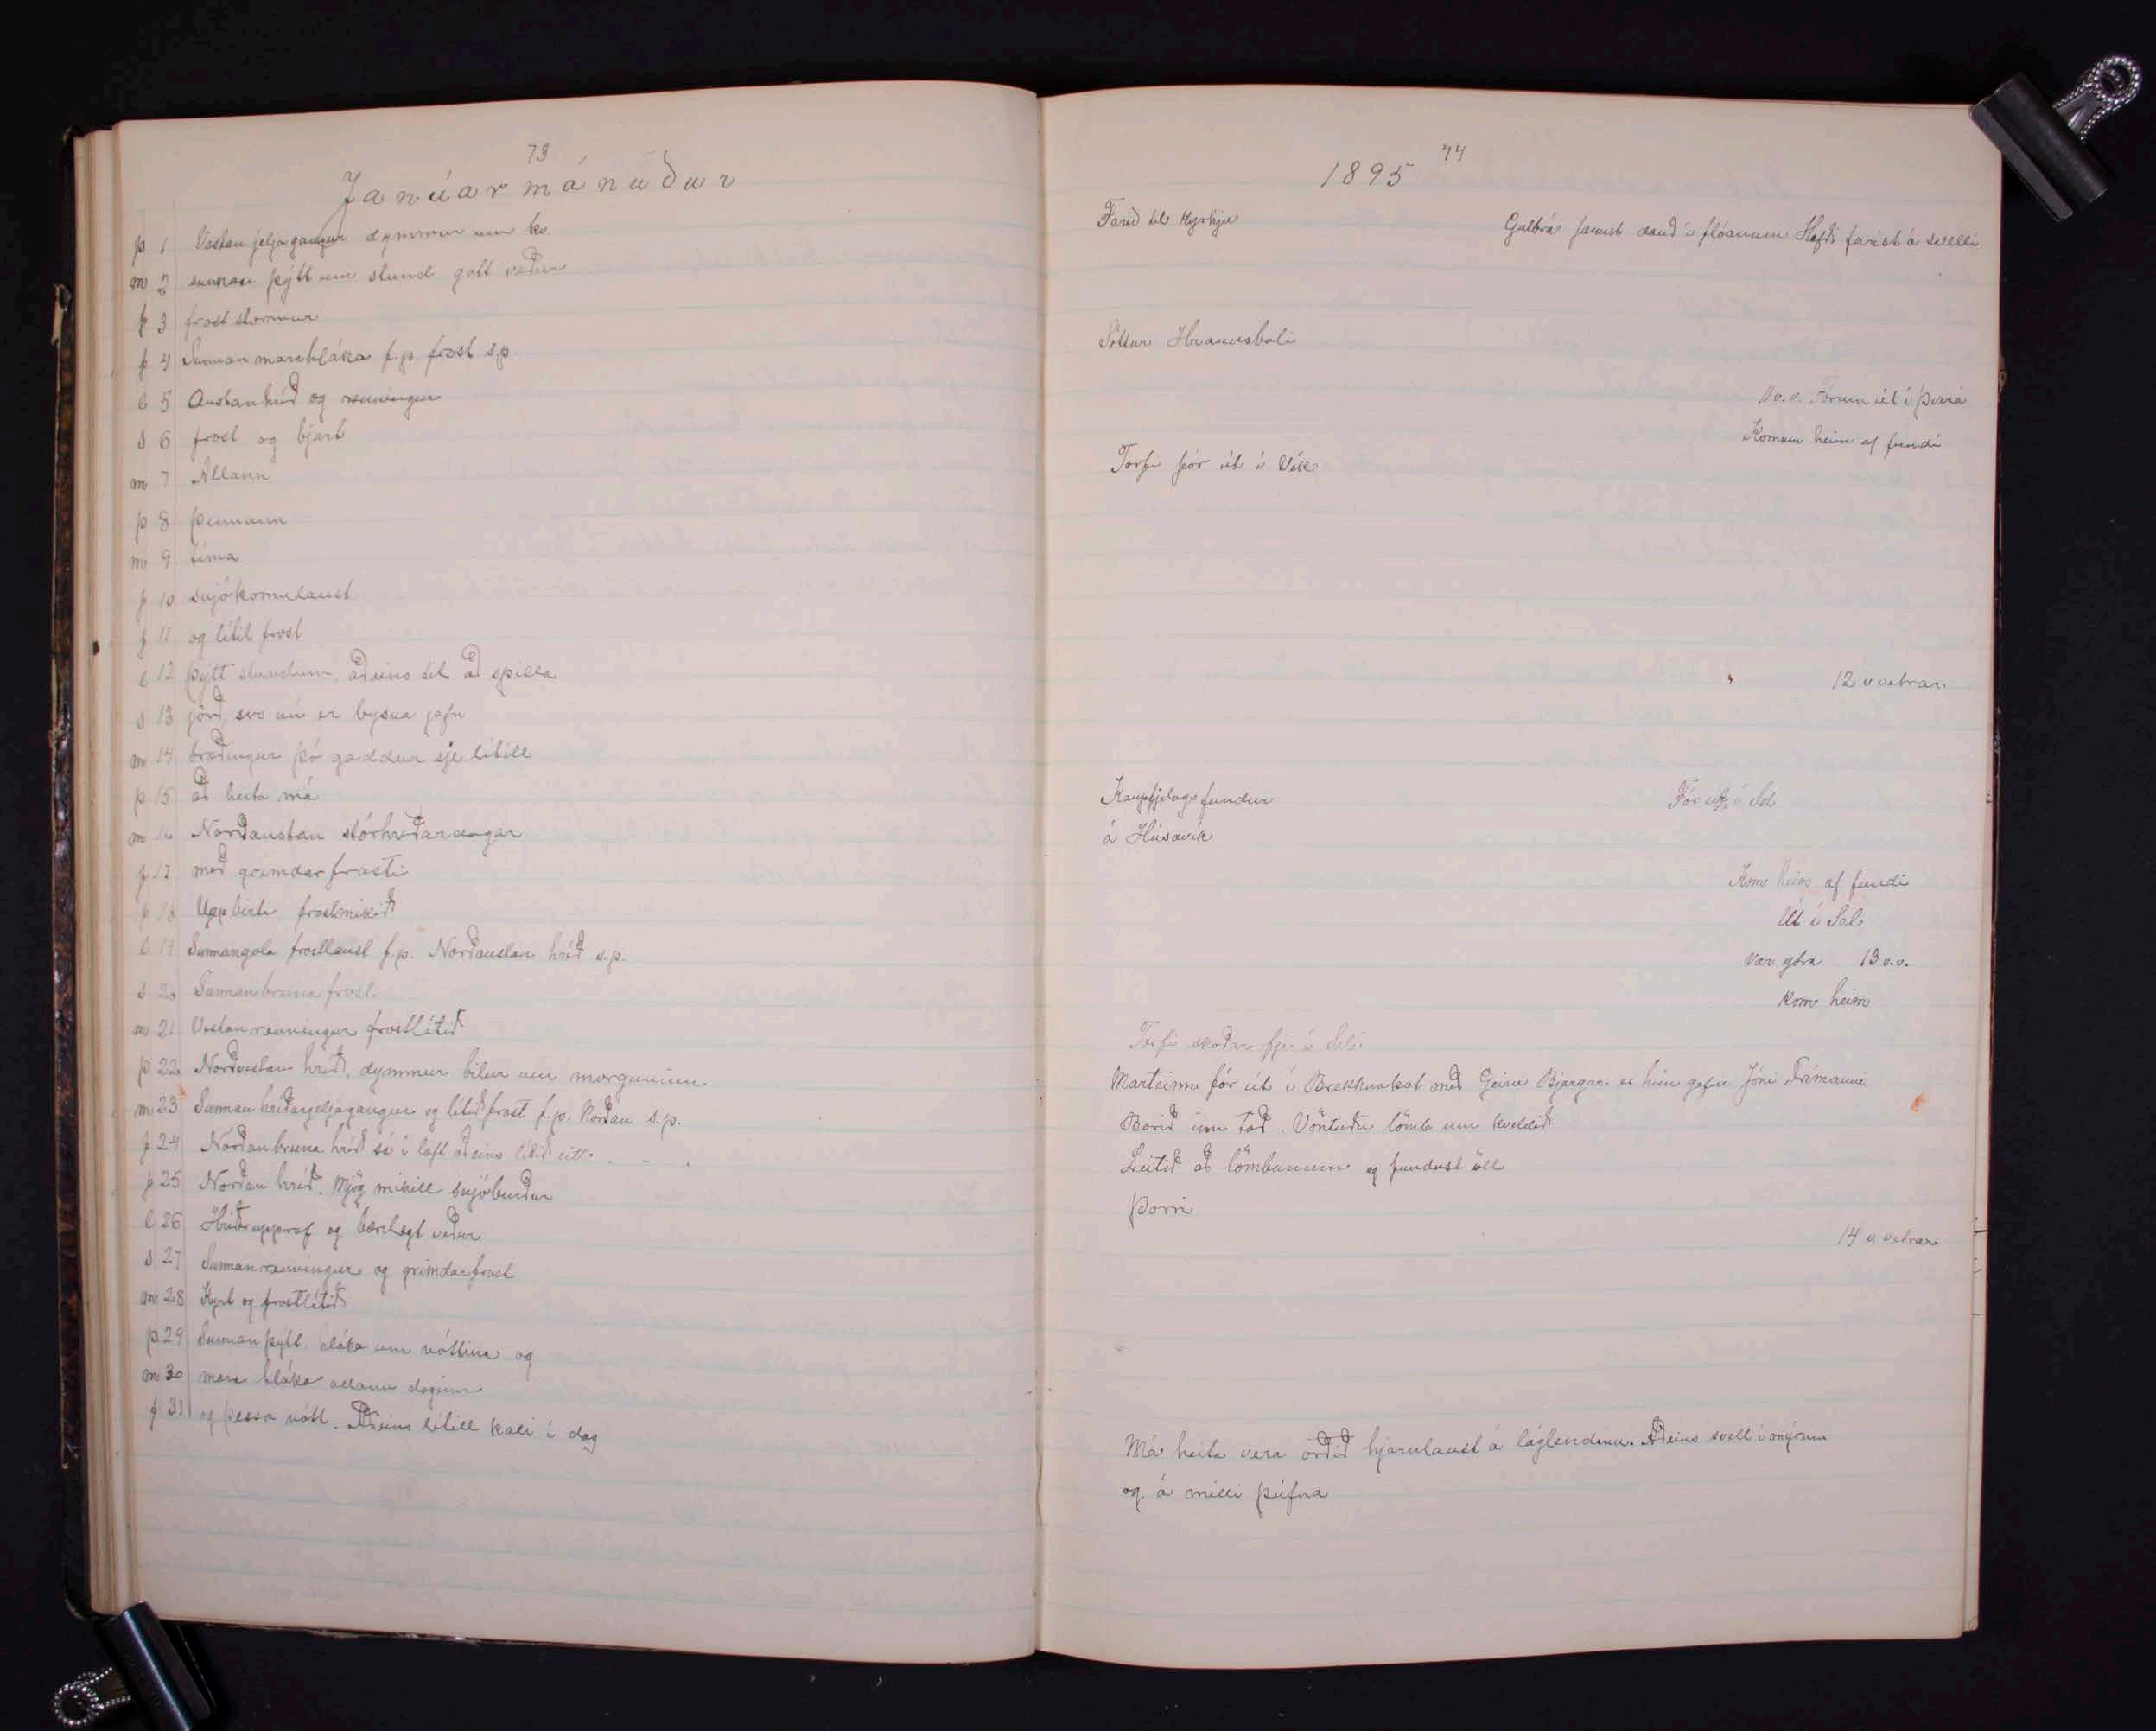 73
Janúarmánuður
þ 1 Vestan jeljagangur dymmur um kv.
m 2 sunnan þýtt um stund gott veður
f 3 frost stormur
f 4 Sunnan marahláka f.p. frost s.p.
l 5 Austanhríð og renningur
s 6 frost og bjart
m 7 Allann
þ 8 þennann
m 9 tíma
f 10 snjókomulaust
f 11 og lítil frost
l 12 þýtt stundum, aðeins til að spilla
s 13 jörð, svo nú er byska jafn
m 14 bræðingur þó gaddur sje lítill
þ 15 að heita má
m 16 Norðaustan stórhríðardagar
f 17 með grimdarfrosti
f 18 Uppbirta, frostmikið
l 19 Sunnangola frostlaust f.p. Norðaustan hríð s.p.
s 20 Sunnan bruna frost.
m 21 Vestanrenningur frostlítið
þ 22 Norðvestan hríð, dymmur bilur um morguninn
m 23 Sunnan hríðarjeljagangur og lítið frost f.p. Norðan s.p.
f 24 Norðan bruna hríð sá í loft aðeins lítið eitt.
f 25 Norðan hríð. Mjög mikill snjóburður
l 26 Hríðarupprof og bærilegt veður
s 27 Sunnanrenningur og grimdarfrost
m 28 Kyrt og frostlítið
þ 29 Sunnan þýtt, hláka um nóttina og
m 30 mara hláka allann daginn
f 31 og þessa nótt. Aðeins lítill kali í dag
74
1895
Farið til kyrkju Gulbrá fannst dauð í flóanum. Hafði farist á svelli
Sóttur Hraunsboli
11 v.v. Fórum út í Þverá
Komum heim af fundi
Torfi fór út í Vík
12 v vetrar.
Kaupfjelagsfundur Fór út í Sel
á Húsavík
Kom heim af fundi
Út í Sel
Var ytra 13 v.v.
Kom heim
Torfi skoðar fje í Seli
Marteinn fór út í Brekknakot með Geira Bjargar er hún gefur Jóni Frímanni
Borið inn tað. Vöntuðu lömb um kveldið
Leitið að lömbunum og fundust öll
Þorri
14 v vetrar
Má heita vera orðið hjarnlaust á láglendinu. Aðeins svell í mýrum
og á milli þúfna